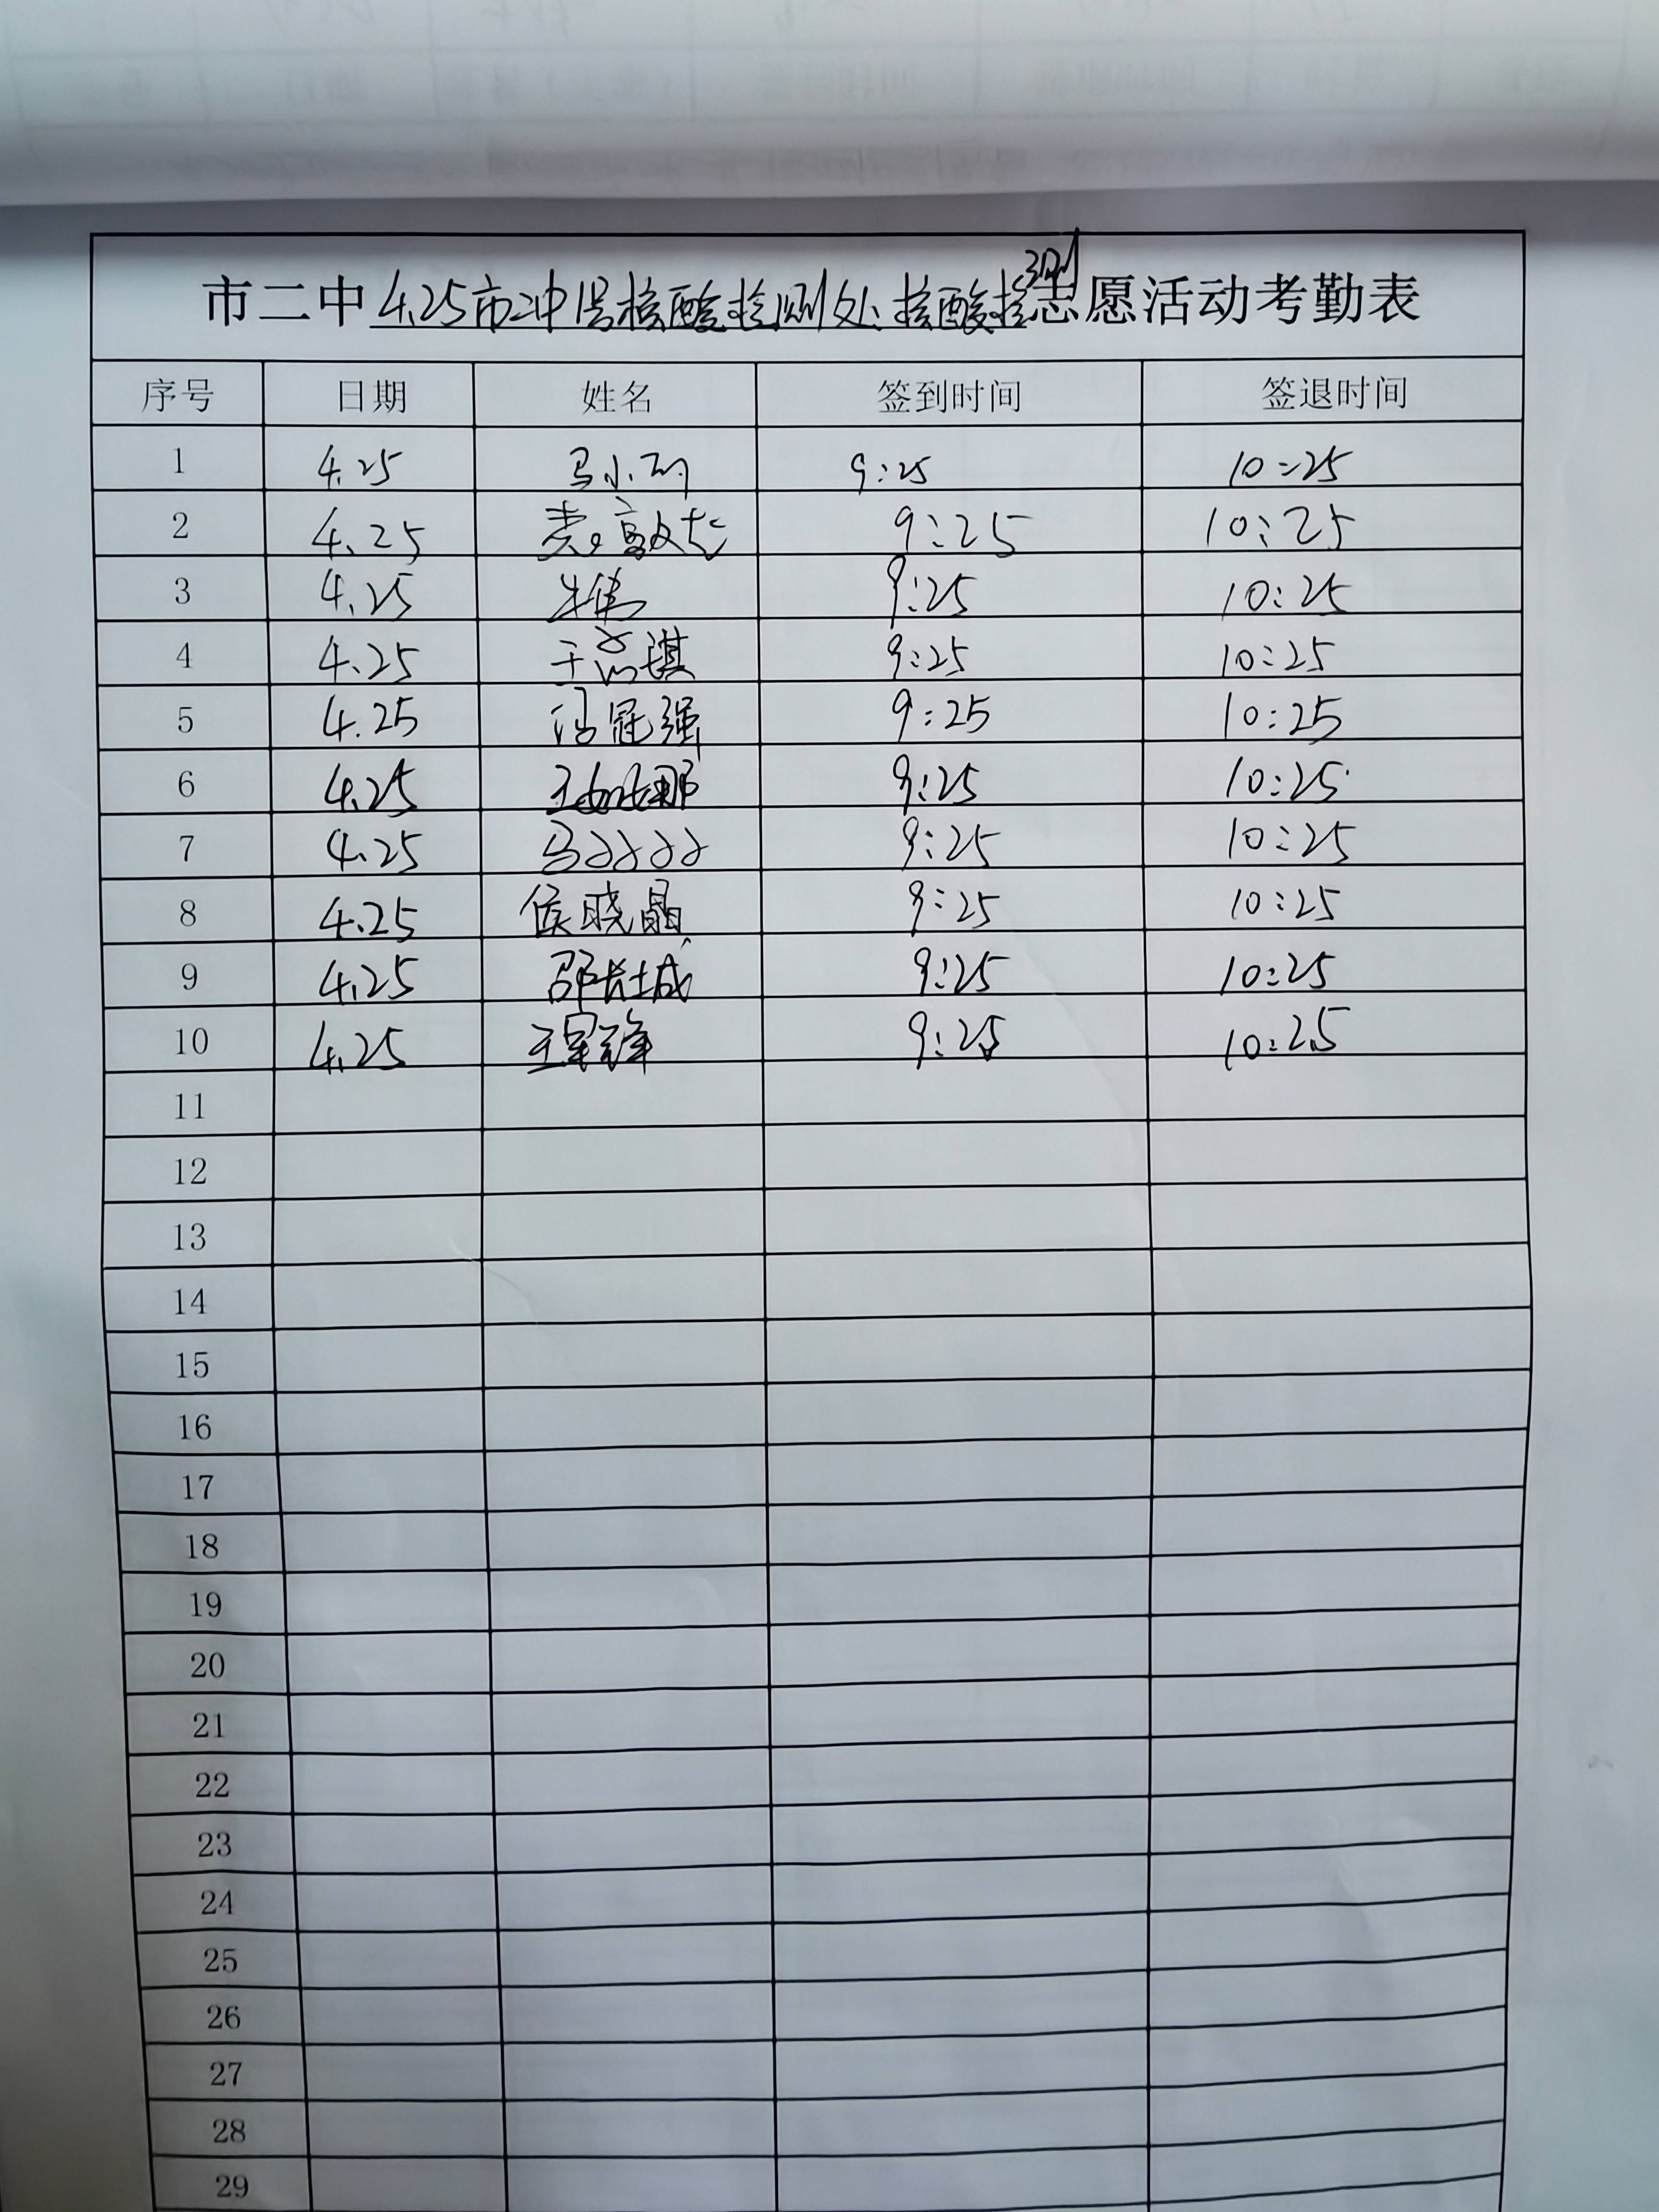 市二中4.25市二中核酸检测处核酸检测志愿活动考勤表
序号 日期 姓名 签到时间 签退时间
1 4.25 马小丽 9:25 10:25
2 4.25 9:25 10:25
3 4.25 牛伟 9:25 10:25
4 4.25 琪 9:25 10:25
5 4.25 冯冠强 9:25 10:25
6 4.25 王娜 9:25 10:25
7 4.25 马 9:25 10:25
8 4.25 侯晓晶 9:25 10:25
9 4.25 邵长城 9:25 10:25
10 4.25 王军锋 9:25 10:25
11
12
13
14
15
16
17
18
19
20
21
22
23
24
25
26
27
28
29